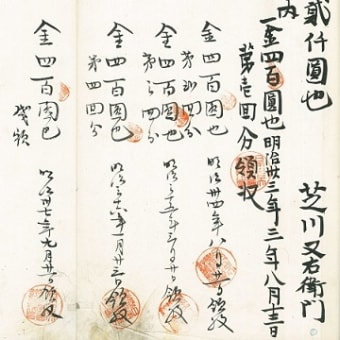 貳仟圓也 芝川又右衛門
内
一金四百圓也明治卅三年三年八月十三日
第壱回分領収
金四百圓也
第弐回分
明治卅四年八月廿一日領収
金四百圓也
第三回分
明治三十五年三月廿日領収
金四百圓也
第四回分
明治三十六年一月廿三日領収
金四百圓也
明治卅七年九月廿一日領収